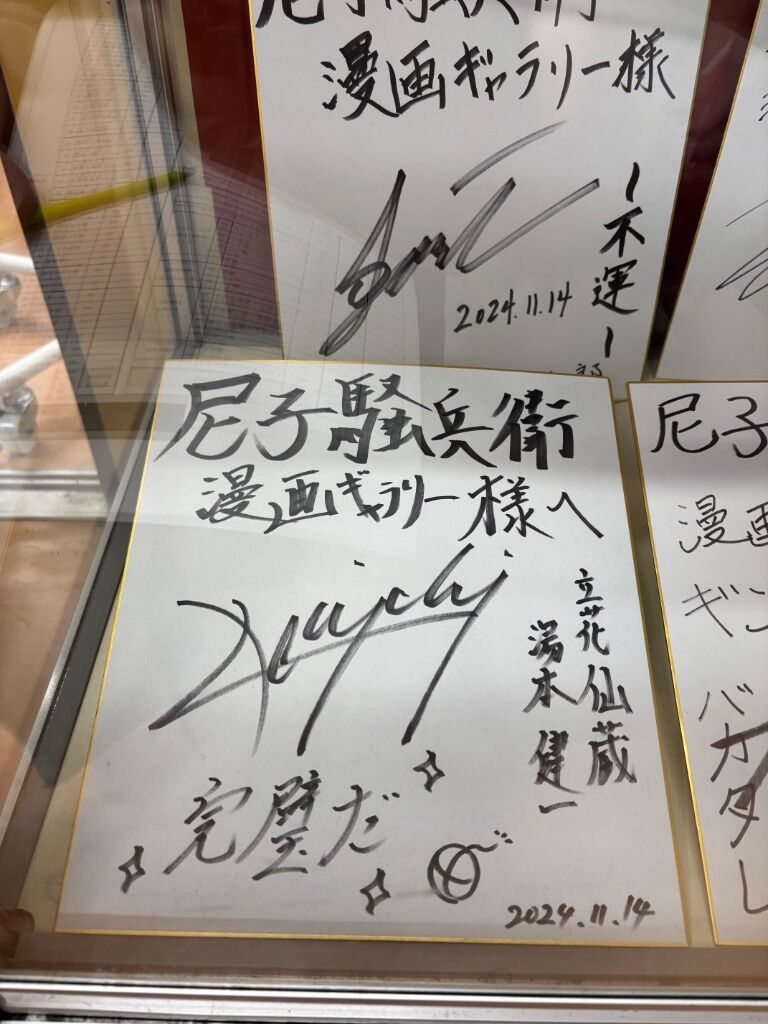 尼子騒兵衛
漫画ギャラリー様
〜不運〜
2024.11.14
尼子騒兵衛
漫画ギャラリー様へ
立花仙蔵
湯本健一
完璧だ
2024.11.14
尼子
漫画
ギ
バカタレ